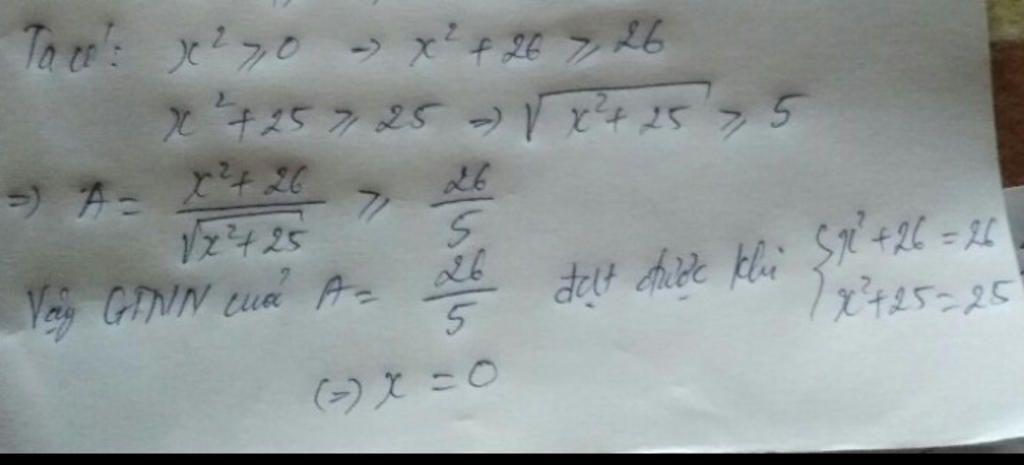 Ta có: x² ≥ 0 → x² + 26 ≥ 26
x² + 25 ≥ 25 => √(x² + 25) ≥ 5
=> A = (x² + 26)/√(x² + 25) ≥ 26/5
Vậy GTNN của A = 26/5 đạt được khi { x² + 26 = 26
x² + 25 = 25
(=) x = 0